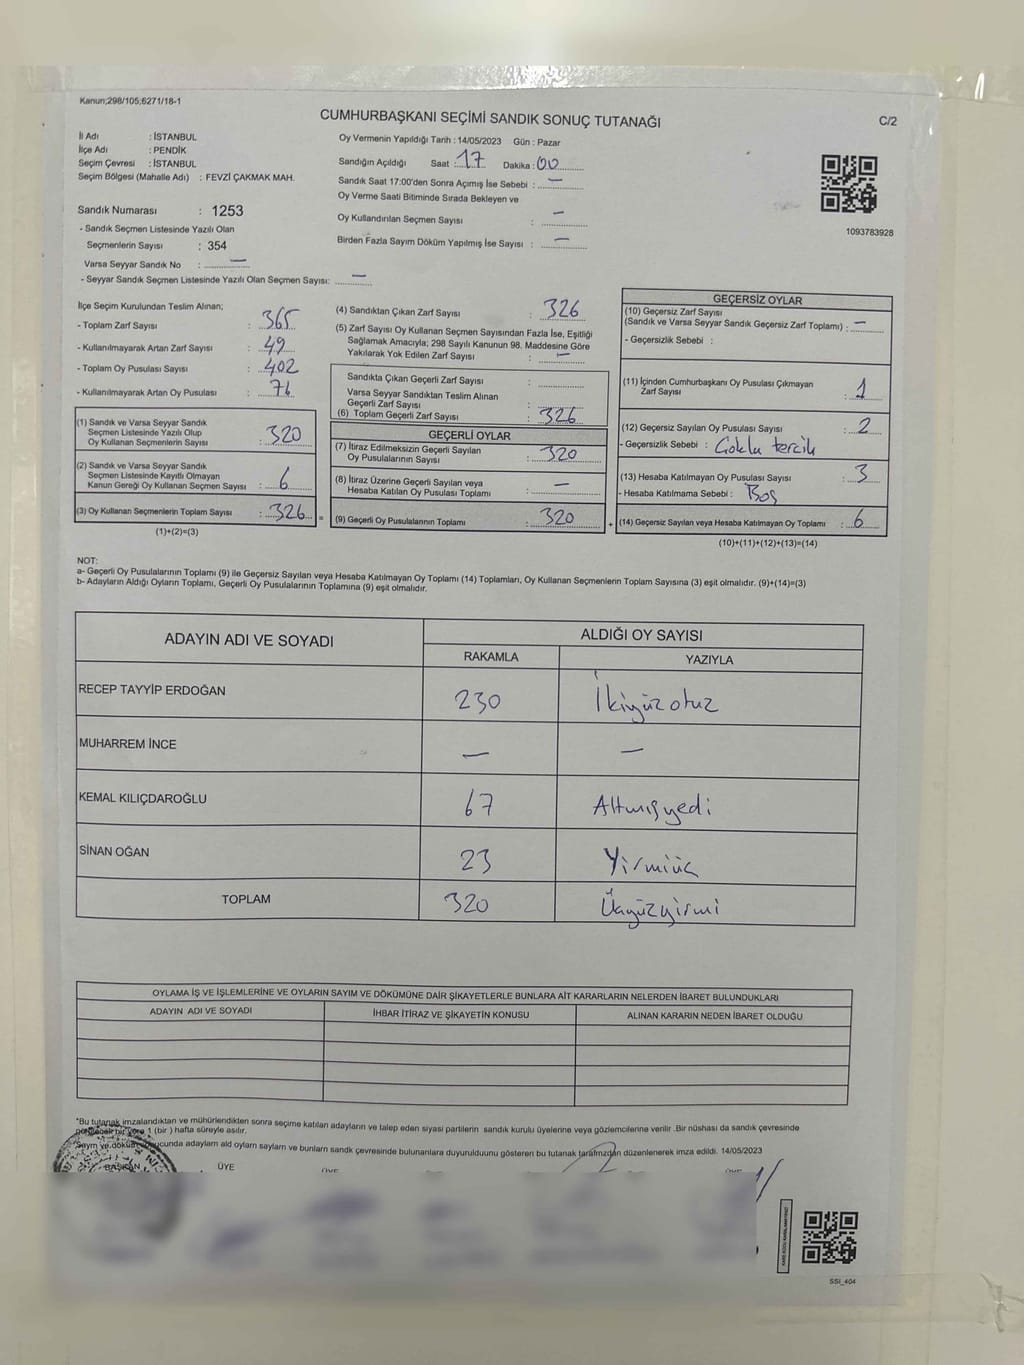 Kanun;298/105;6271/18-1
CUMHURBAŞKANI SEÇİMİ SANDIK SONUÇ TUTANAĞI
C/2
İl Adı : İSTANBUL
İlçe Adı : PENDİK
Seçim Çevresi : İSTANBUL
Seçim Bölgesi (Mahalle Adı) : FEVZİ ÇAKMAK MAH.
Sandık Numarası : 1253
- Sandık Seçmen Listesinde Yazılı Olan
Seçmenlerin Sayısı : 354
Varsa Seyyar Sandık No : —
- Seyyar Sandık Seçmen Listesinde Yazılı Olan Seçmen Sayısı: —
Oy Vermenin Yapıldığı Tarih : 14/05/2023 Gün : Pazar
Sandığın Açıldığı Saat : 17 Dakika : 00
Sandık Saat 17:00'den Sonra Açımış İse Sebebi : —
Oy Verme Saati Bitiminde Sırada Bekleyen ve
Oy Kullandırılan Seçmen Sayısı : —
Birden Fazla Sayım Döküm Yapılmış İse Sayısı : —
1093783928
İlçe Seçim Kurulundan Teslim Alınan;
- Toplam Zarf Sayısı : 365
- Kullanılmayarak Artan Zarf Sayısı : 49
- Toplam Oy Pusulası Sayısı : 402
- Kullanılmayarak Artan Oy Pusulası : 76
(1) Sandık ve Varsa Seyyar Sandık
Seçmen Listesinde Yazılı Olup
Oy Kullanan Seçmenlerin Sayısı : 320
(2) Sandık ve Varsa Seyyar Sandık
Seçmen Listesinde Kayıtlı Olmayan
Kanun Gereği Oy Kullanan Seçmen Sayısı : 6
(3) Oy Kullanan Seçmenlerin Toplam Sayısı : 326 =
(1)+(2)=(3)
(4) Sandıktan Çıkan Zarf Sayısı : 326
(5) Zarf Sayısı Oy Kullanan Seçmen Sayısından Fazla İse, Eşitliği
Sağlamak Amacıyla; 298 Sayılı Kanunun 98. Maddesine Göre
Yakılarak Yok Edilen Zarf Sayısı : —
Sandıkta Çıkan Geçerli Zarf Sayısı :
Varsa Seyyar Sandıktan Teslim Alınan
Geçerli Zarf Sayısı :
(6) Toplam Geçerli Zarf Sayısı : 326
GEÇERLİ OYLAR
(7) İtiraz Edilmeksizin Geçerli Sayılan
Oy Pusulalarının Sayısı : 320
(8) İtiraz Üzerine Geçerli Sayılan veya
Hesaba Katılan Oy Pusulası Toplamı : —
(9) Geçerli Oy Pusulalarının Toplamı : 320 +
GEÇERSİZ OYLAR
(10) Geçersiz Zarf Sayısı
(Sandık ve Varsa Seyyar Sandık Geçersiz Zarf Toplamı) : —
- Geçersizlik Sebebi :
(11) İçinden Cumhurbaşkanı Oy Pusulası Çıkmayan
Zarf Sayısı : 1
(12) Geçersiz Sayılan Oy Pusulası Sayısı : 2
- Geçersizlik Sebebi : Çoklu tercih
(13) Hesaba Katılmayan Oy Pusulası Sayısı : 3
- Hesaba Katılmama Sebebi : Boş
(14) Geçersiz Sayılan veya Hesaba Katılmayan Oy Toplamı : 6
(10)+(11)+(12)+(13)=(14)
NOT:
a- Geçerli Oy Pusulalarının Toplamı (9) ile Geçersiz Sayılan veya Hesaba Katılmayan Oy Toplamı (14) Toplamları, Oy Kullanan Seçmenlerin Toplam Sayısına (3) eşit olmalıdır. (9)+(14)=(3)
b- Adayların Aldığı Oyların Toplamı, Geçerli Oy Pusulalarının Toplamına (9) eşit olmalıdır.
ADAYIN ADI VE SOYADI
ALDIĞI OY SAYISI
RAKAMLA YAZIYLA
RECEP TAYYİP ERDOĞAN 230 İkiyüz otuz
MUHARREM İNCE — —
KEMAL KILIÇDAROĞLU 67 Altmış yedi
SİNAN OĞAN 23 Yirmiüç
TOPLAM 320 Üçyüzyirmi
OYLAMA İŞ VE İŞLEMLERİNE VE OYLARIN SAYIM VE DÖKÜMÜNE DAİR ŞİKAYETLERLE BUNLARA AİT KARARLARIN NELERDEN İBARET BULUNDUKLARI
ADAYIN ADI VE SOYADI İHBAR İTİRAZ VE ŞİKAYETİN KONUSU ALINAN KARARIN NEDEN İBARET OLDUĞU
"Bu tutanak imzalandıktan ve mühürlendikten sonra seçime katılan adayların ve talep eden siyasi partilerin sandık kurulu üyelerine veya gözlemcilerine verilir .Bir nüshası da sandık çevresinde
bir yere 1 (bir ) hafta süreyle asılır.
Sayım ve döküm sonucunda adayların ald oyların sayların ve bunların sandık çevresinde bulunanlara duyurulduunu gösteren bu tutanak tarafmzdan düzenlenerek imza edildi. 14/05/2023
BAŞKAN ÜYE ÜYE ÜYE
SSI_404